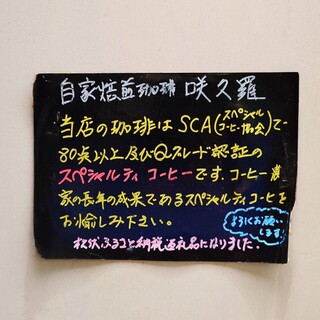 自家焙煎珈琲 咲久羅
当店の珈琲はSCA(スペシャルコーヒー協会)で
80点以上及びQグレード認証の
スペシャルティコーヒーです。コーヒー農
家の長年の成果であるスペシャルティコーヒーを
お愉しみ下さい。
よろしくお願いします。
ふるさと納税返礼品になりました